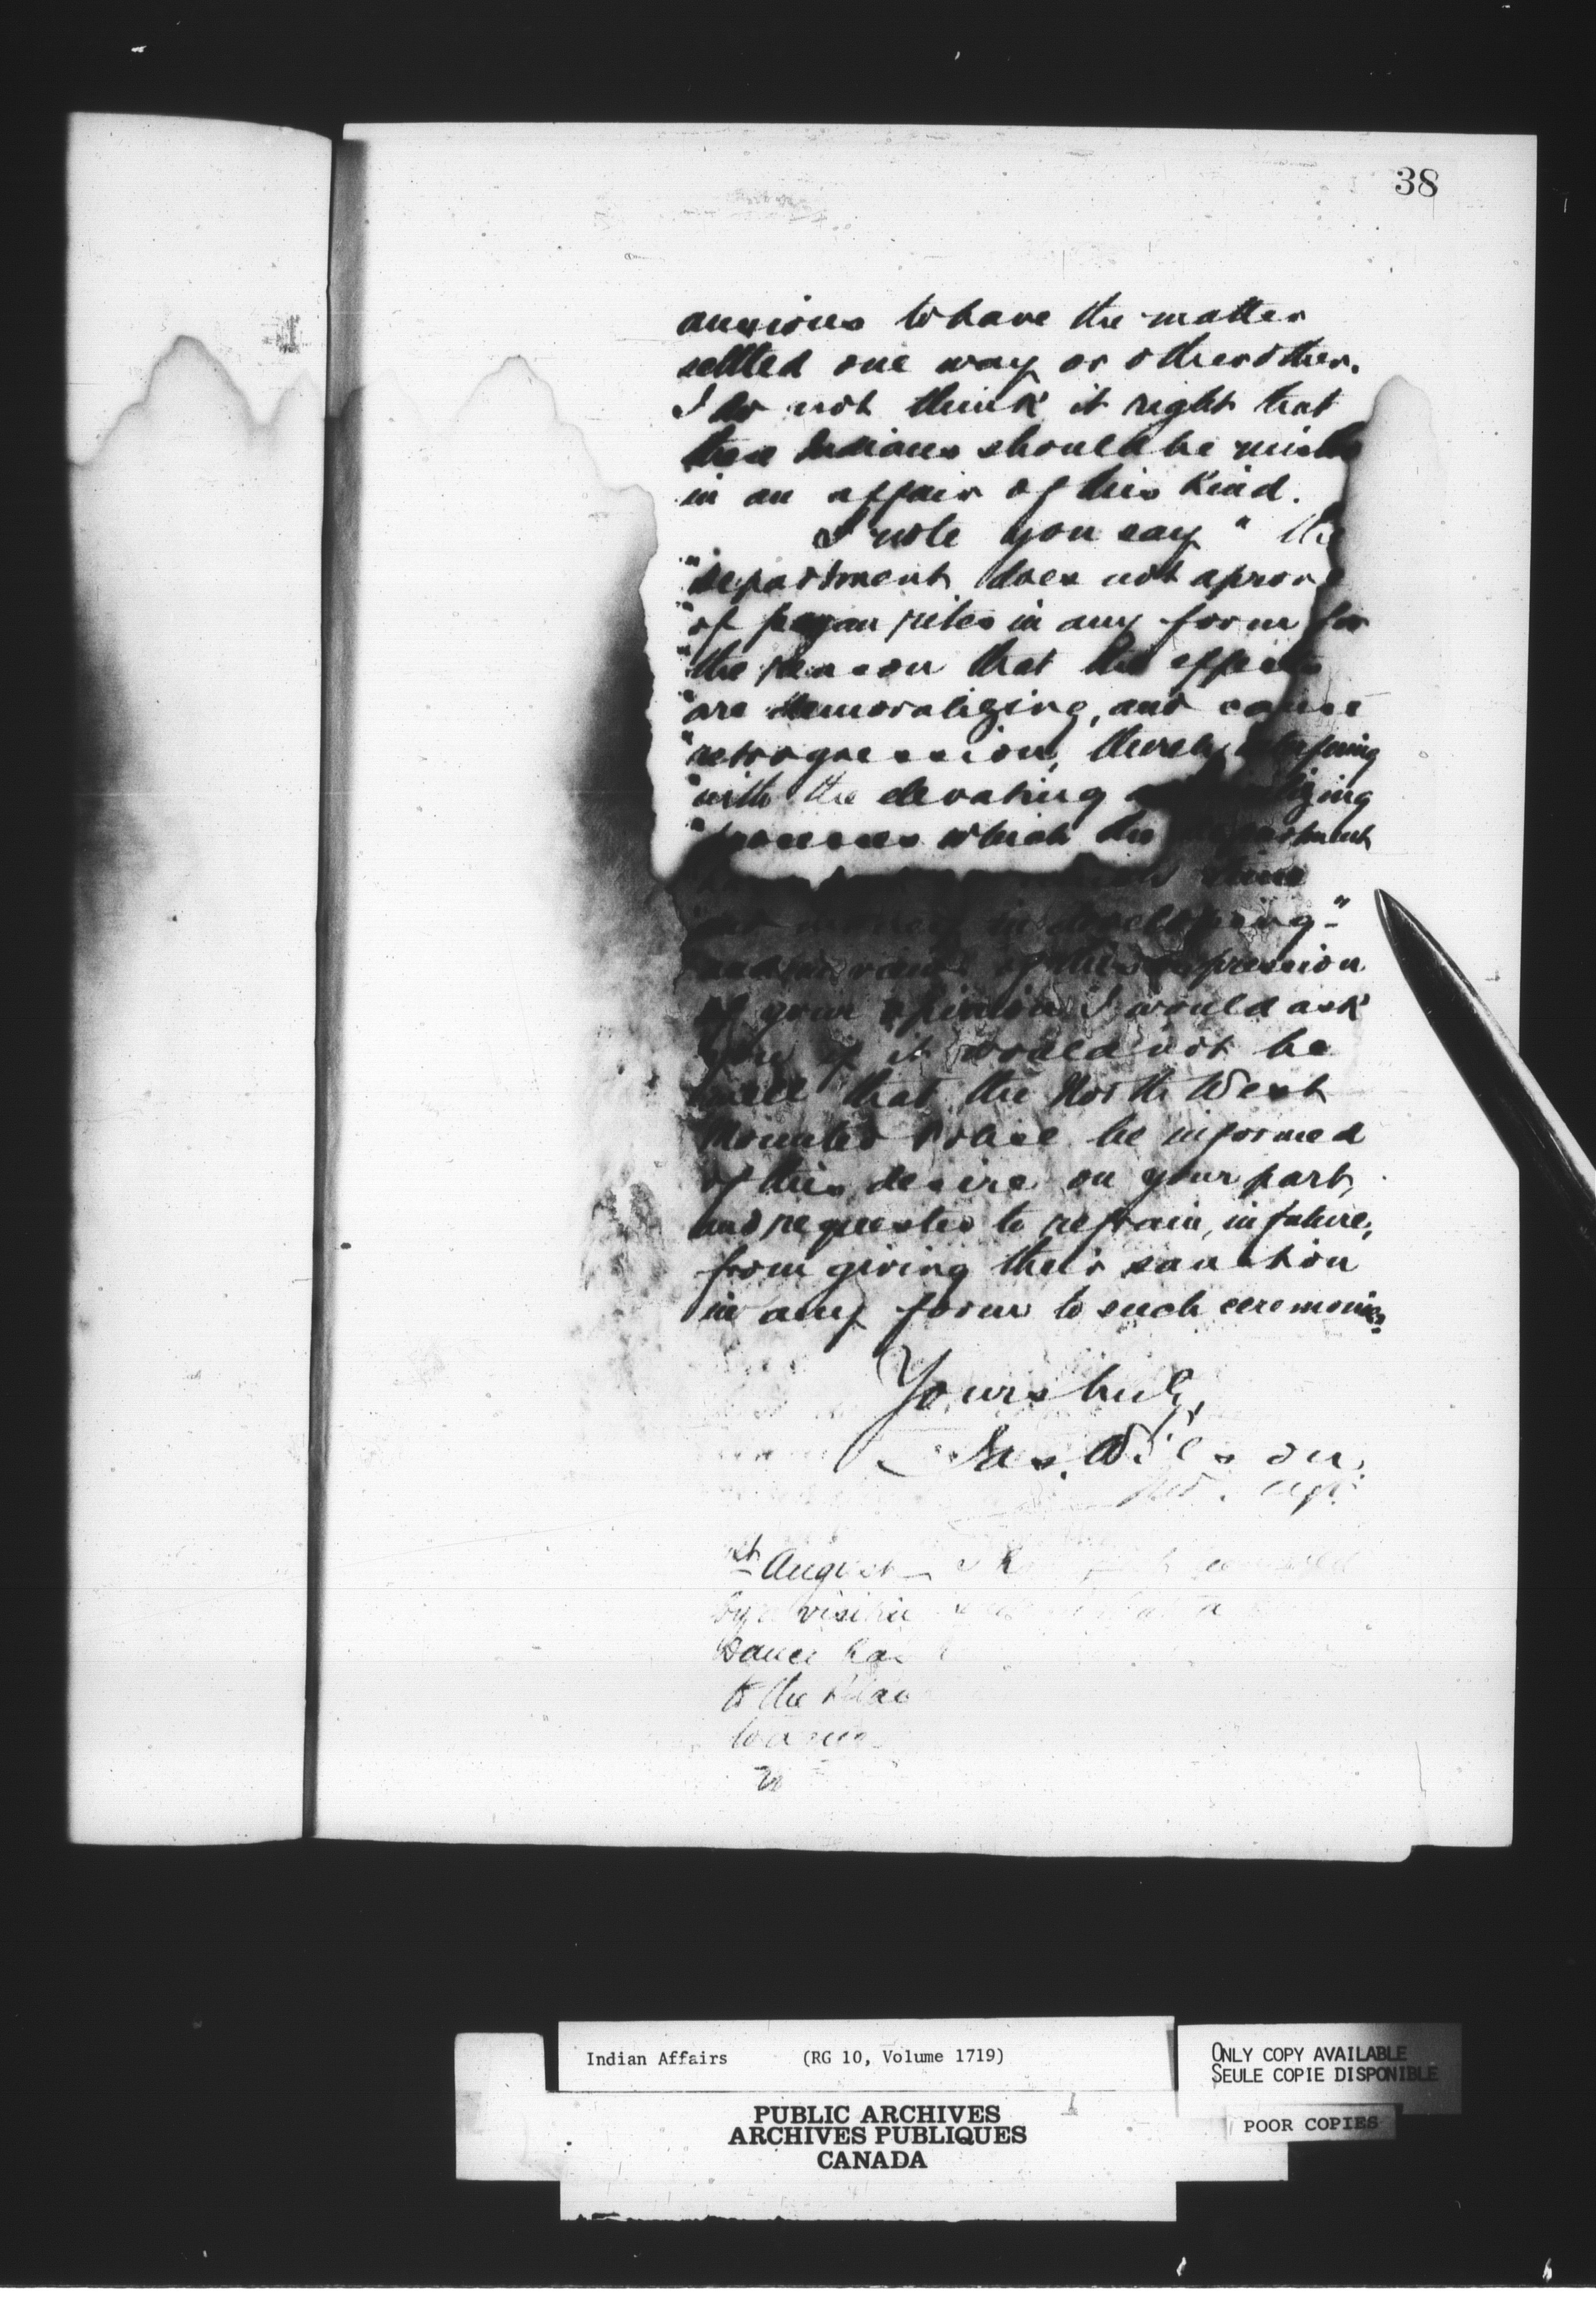 38
anxious to have the matter
settled one way or otherother.
I do not think it right that
these Indians should be
in an affair of this kind.
I note you say " the
"department does not aprove
"of pagan rites in any form for
"the reason that the effects
"are demoralizing, and cause
"retrogression, thereby interfering
"with the elevating
"processes which the Department
time
"and money in developing"-
and in view of this expression
of your opinion I would ask
you if it would not be
well that the North West
Mounted Police be informed
of this desire on your part,
and requested to refrain, in future,
from giving their sanction
in any form to such ceremonies.
Yours truly,
Jas. Wilson,
Ind. Agt.
August
Dance
to the
Indian Affairs (RG 10, Volume 1719)
PUBLIC ARCHIVES
ARCHIVES PUBLIQUES
CANADA
ONLY COPY AVAILABLE
SEULE COPIE DISPONIBLE
POOR COPIES